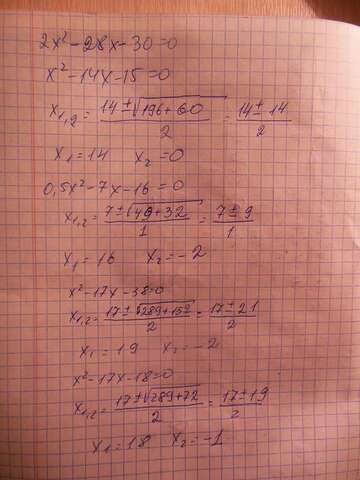 2x² - 28x - 30 = 0
x² - 14x - 15 = 0
x₁,₂ = (14 ± √(196 + 60)) / 2 = (14 ± 14) / 2
x₁ = 14 x₂ = 0
0,5x² - 7x - 16 = 0
x₁,₂ = (7 ± √(49 + 32)) / 1 = (7 ± 9) / 1
x₁ = 16 x₂ = -2
x² - 17x - 38 = 0
x₁,₂ = (17 ± √(289 + 152)) / 2 = (17 ± 21) / 2
x₁ = 19 x₂ = -2
x² - 17x - 18 = 0
x₁,₂ = (17 ± √(289 + 72)) / 2 = (17 ± 19) / 2
x₁ = 18 x₂ = -1